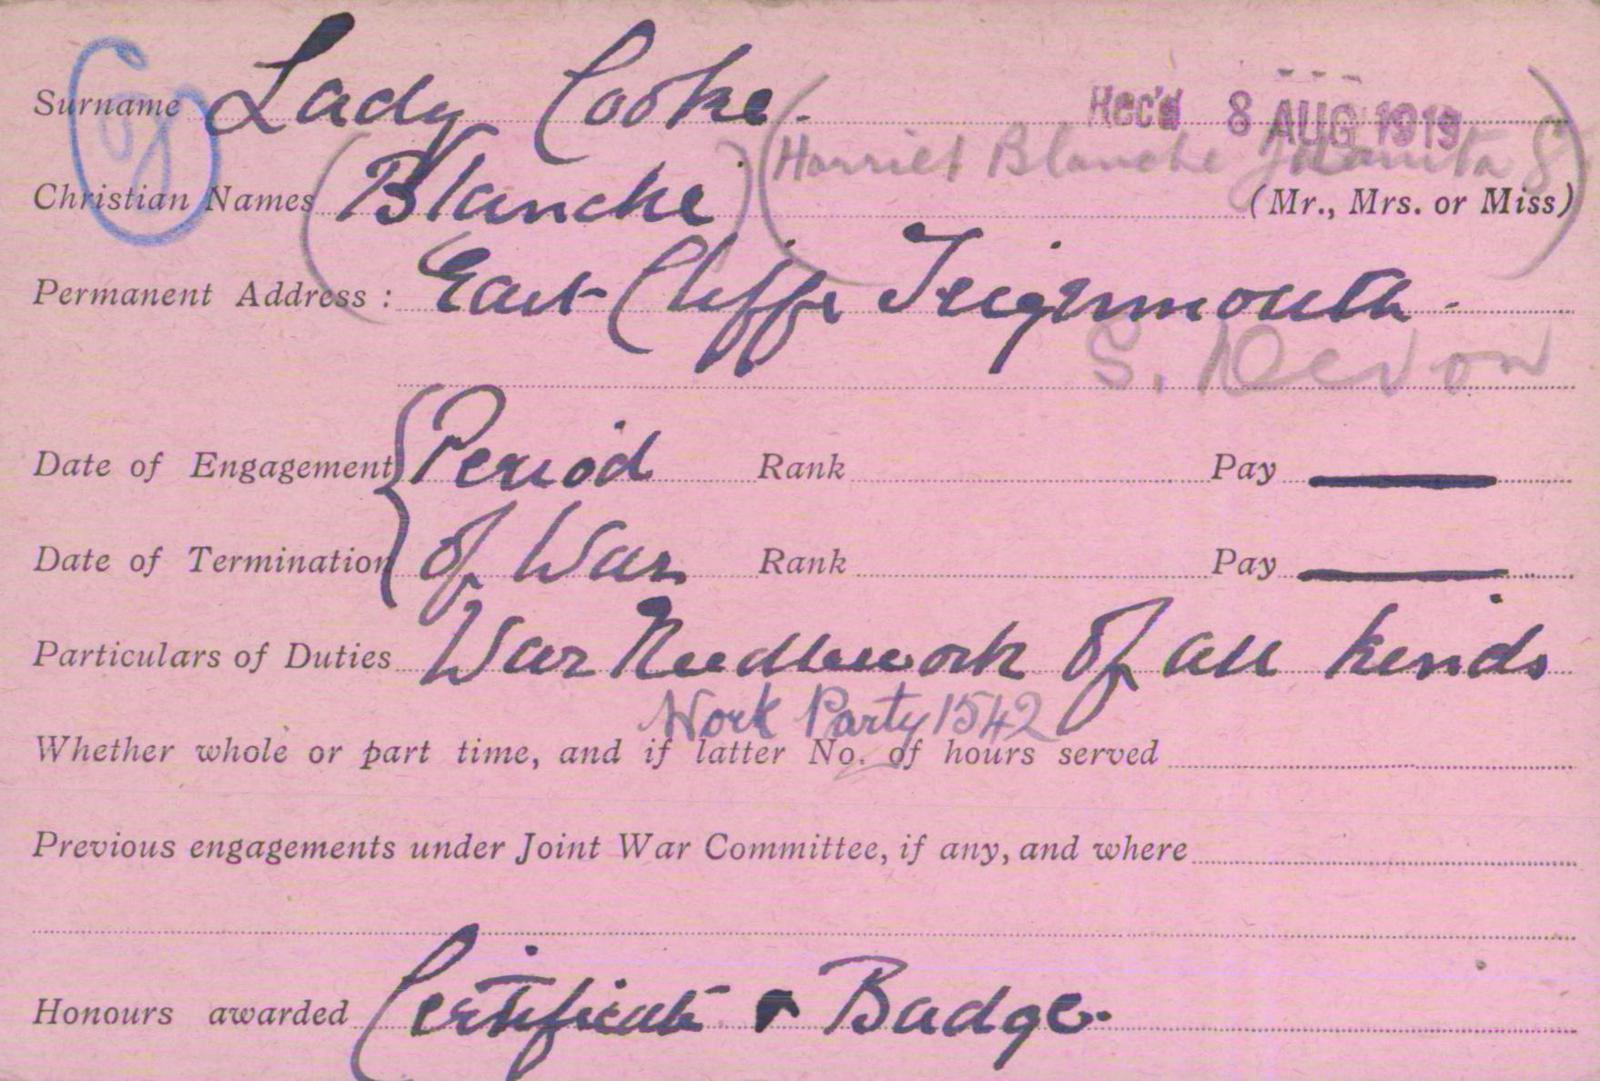 Surname Lady Cooke. Rec'd 8 AUG 1919
(Harriet Blanche Juanita G)
Christian Names (Blanche) (Mr., Mrs. or Miss)
Permanent Address: East Cliffe Teignmouth.
S. Devon
Date of Engagement { Period Rank Pay —
Date of Termination { of War Rank Pay —
Particulars of Duties War Needlework of all kinds
Work Party 1542
Whether whole or part time, and if latter No. of hours served
Previous engagements under Joint War Committee, if any, and where
Honours awarded Certificate & Badge.